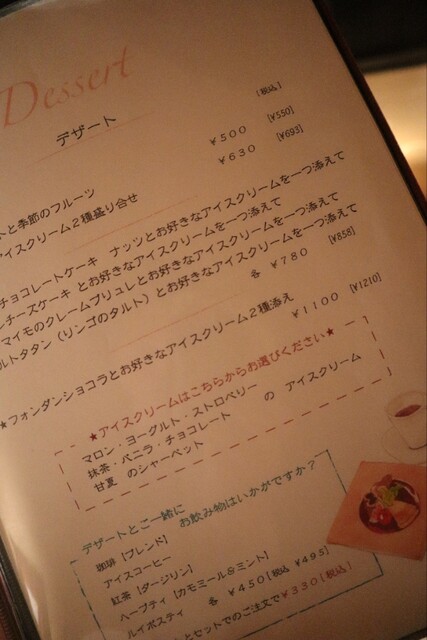 Dessert
デザート
[税込]
と季節のフルーツ ¥500 [¥550]
アイスクリーム2種盛り合せ ¥630 [¥693]
チョコレートケーキ ナッツとお好きなアイスクリームを一つ添えて
チーズケーキ とお好きなアイスクリームを一つ添えて
マイモのクレームブリュレとお好きなアイスクリームを一つ添えて
ルトタタン（リンゴのタルト）とお好きなアイスクリームを一つ添えて
各 ¥780 [¥858]
★フォンダンショコラとお好きなアイスクリーム2種添え ¥1100 [¥1210]
★アイスクリームはこちらからお選びください★
マロン・ヨーグルト・ストロベリー
抹茶・バニラ・チョコレート の アイスクリーム
甘夏 のシャーベット
デザートとご一緒に
お飲み物はいかがですか？
珈琲 [ブレンド]
アイスコーヒー
紅茶 [ダージリン]
ハーブティ [カモミール&ミント]
ルイボスティ 各 ¥450 [税込 ¥495]
とセットでのご注文で¥330[税込]